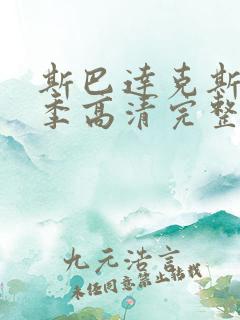 斯巴達克斯
季高清完整
九元浩言
未经同意禁止转载